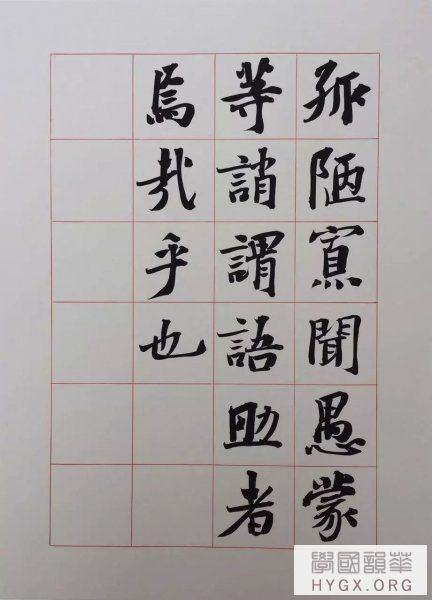 孤陋寡聞愚蒙
等誚謂語助者
焉哉乎也
華韻國學
HYGX.ORG